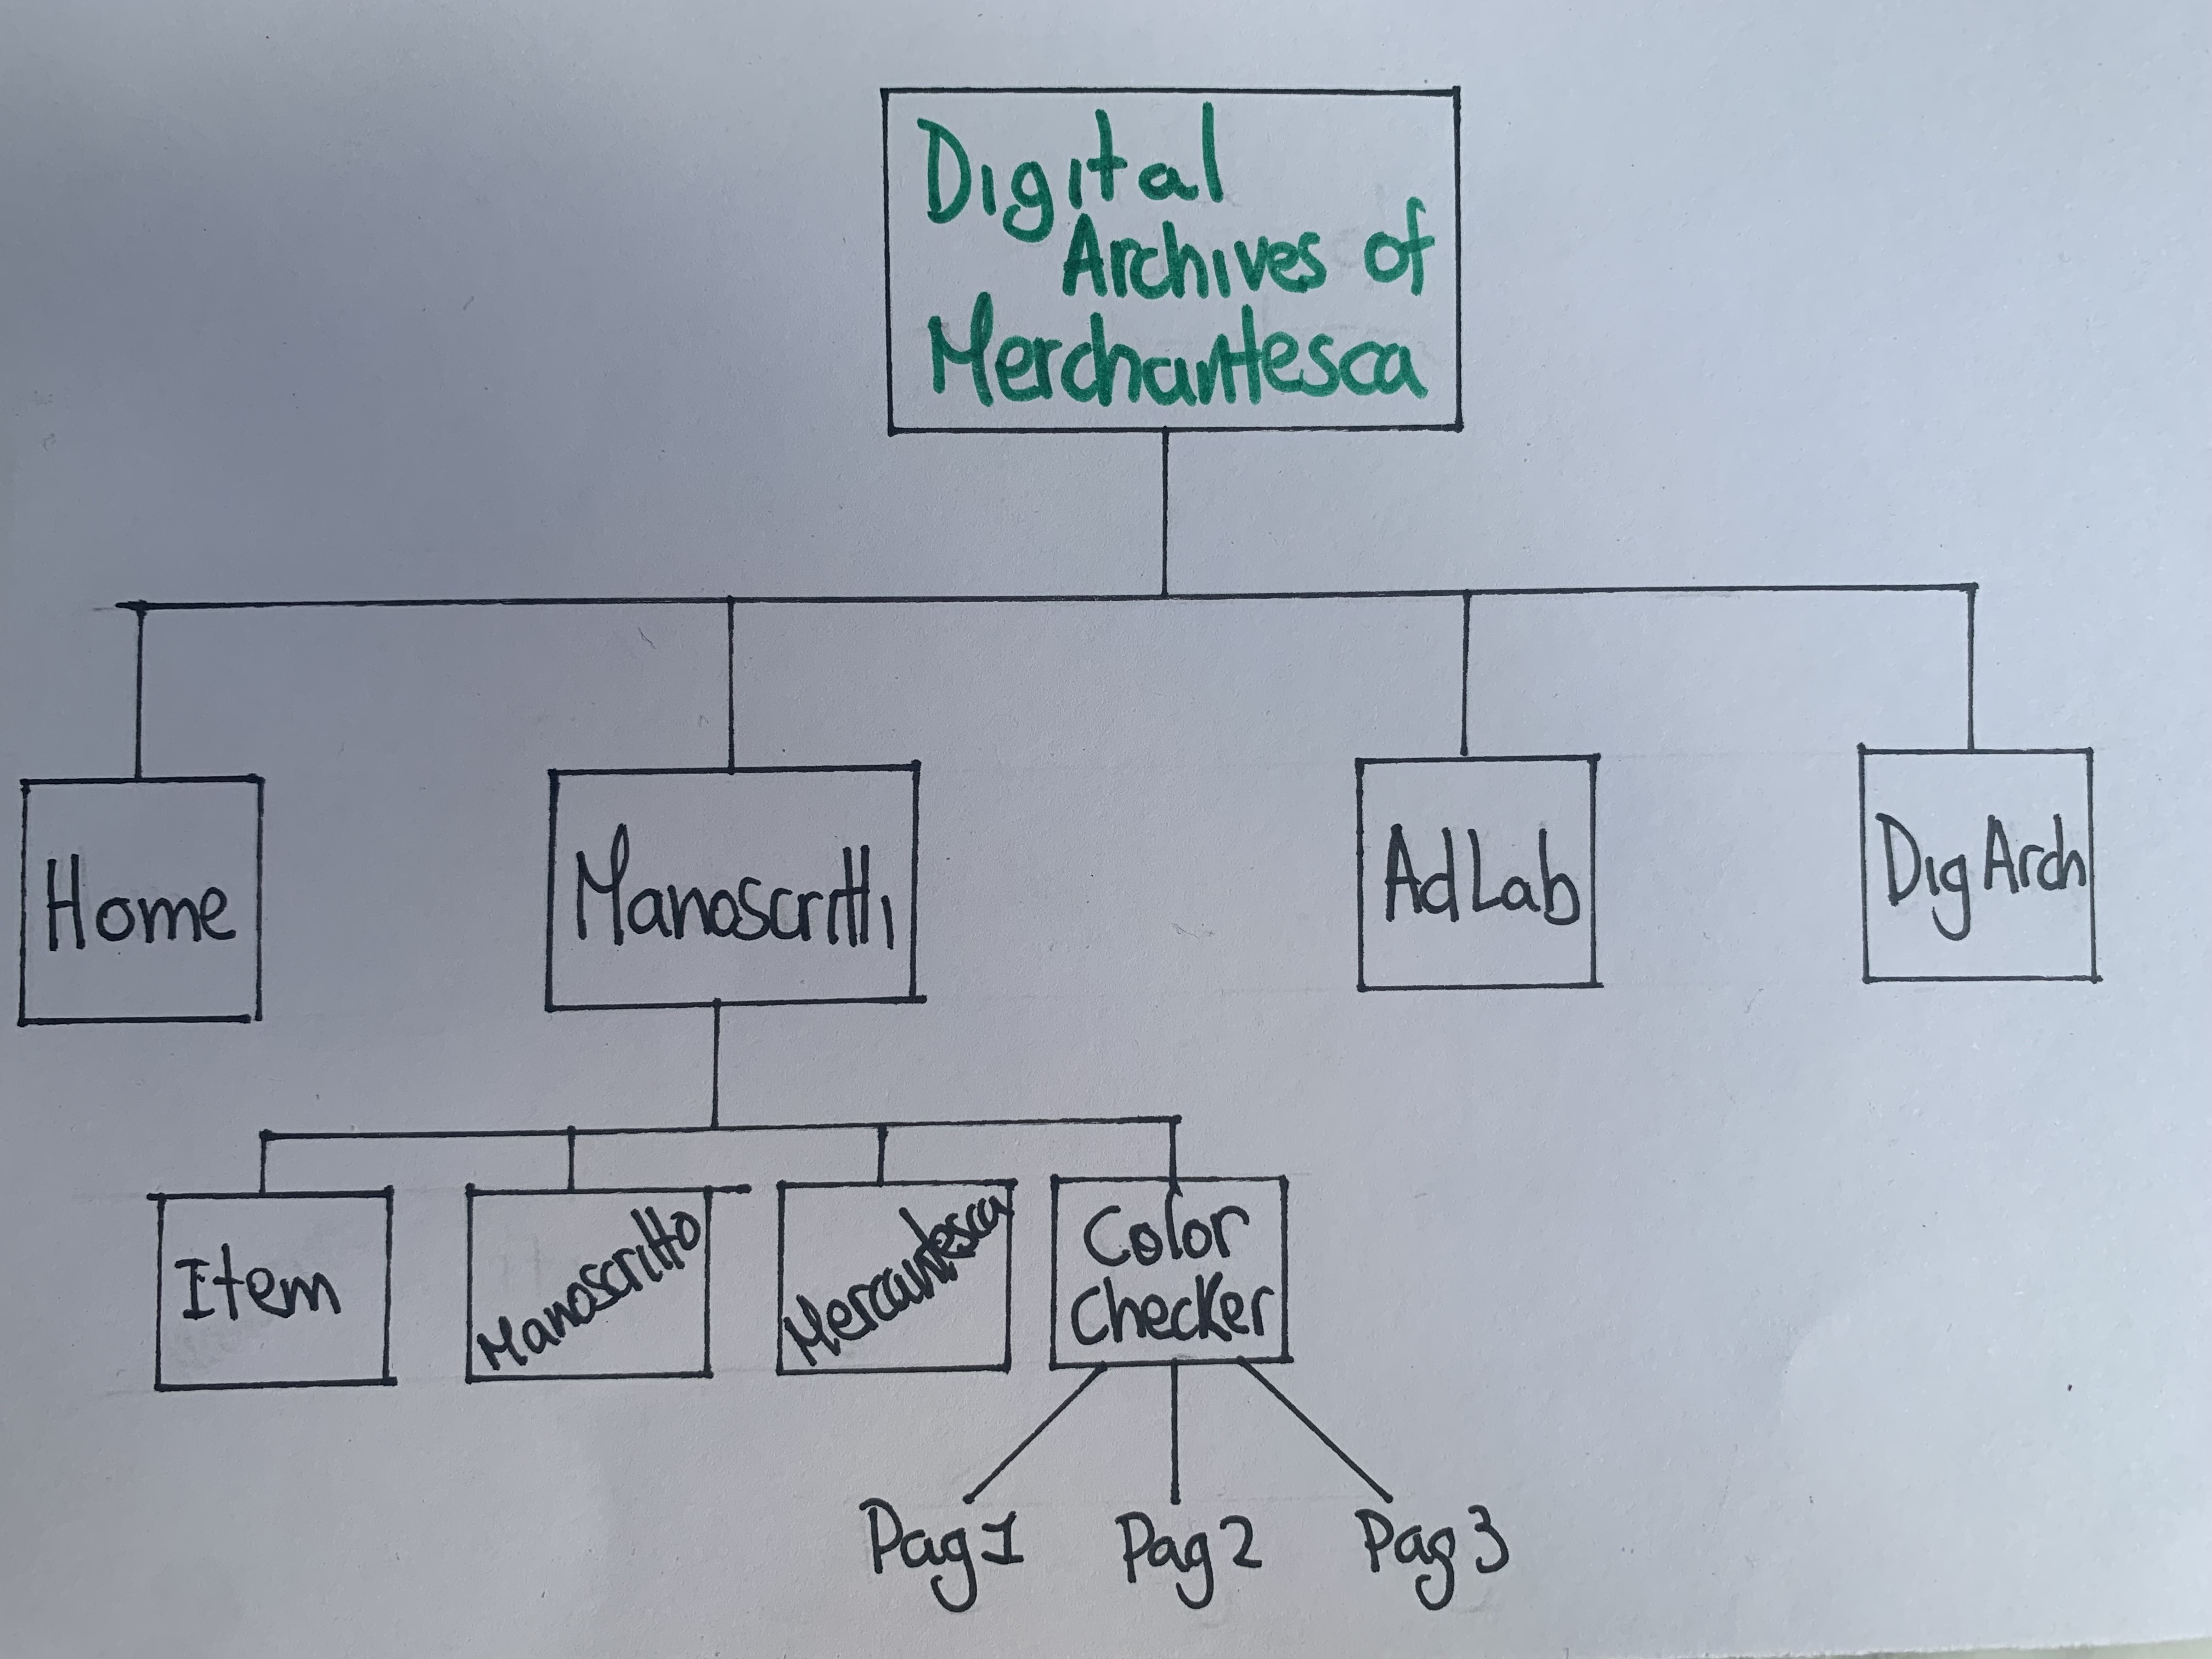 Digital
Archives of
Merchantesca
Home
Manoscritti
AdLab
DigArch
Item
Manoscritto
Mercantesca
Color
Checker
Pag 1
Pag 2
Pag 3